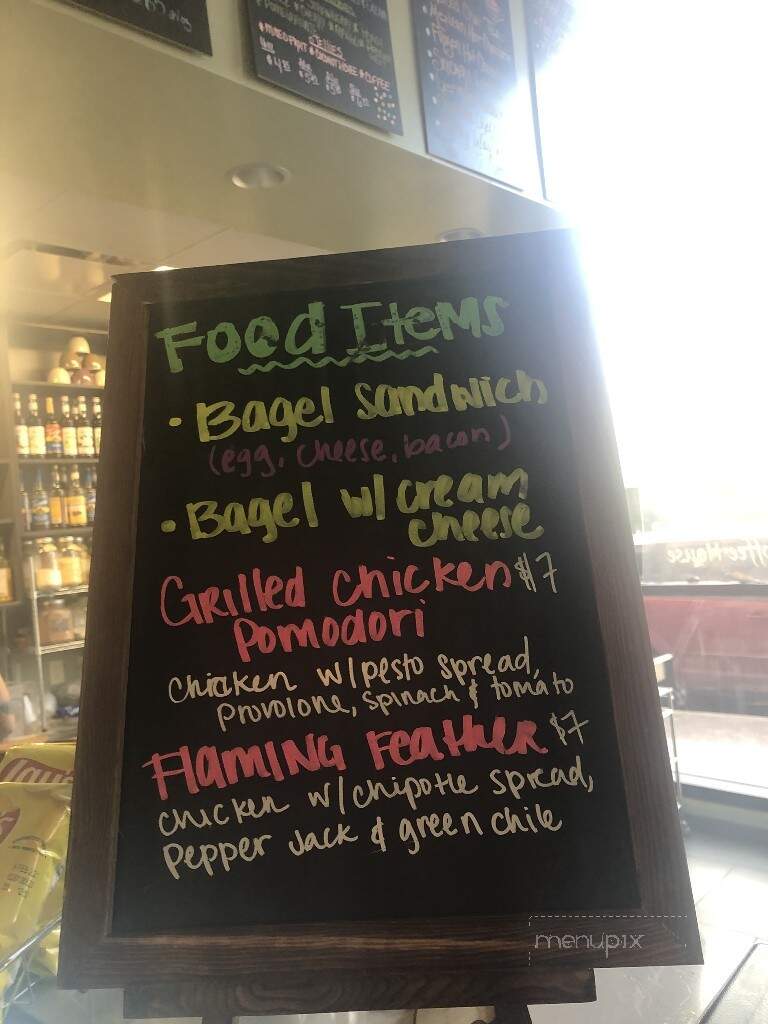 JELLIES
COFFEE
Food Items
• Bagel Sandwich
(egg, cheese, bacon)
• Bagel w/ cream
cheese
Grilled chicken $7
Pomodori
Chicken w/pesto spread,
provolone, spinach & tomato
Flaming Feather $7
chicken w/chipotle spread,
pepper jack & green chile
Lay's
menupix